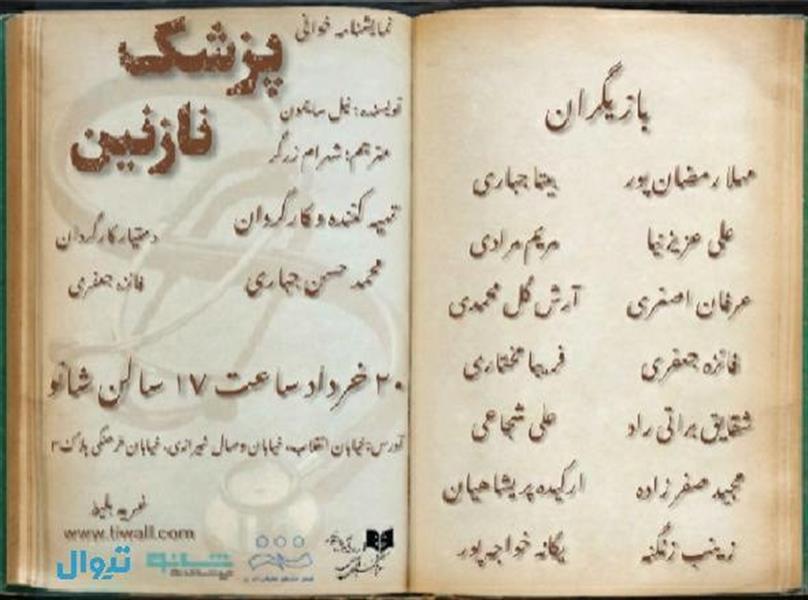 بازیگران
مهلا رمضان پور
بیتا جباری
علی عزیزنیا
مریم مرادی
عرفان اصغری
آرش گل محمدی
فائزه جعفری
فریبا مختاری
شقایق براتی راد
علی شجاعی
مجید صفرزاده
ارکیده پریشاهیان
زینب زنگنه
یگانه خواجه پور
نمایشنامه خوانی
پزشک
نازنین
نویسنده: نیل سایمون
مترجم: شهرام زرگر
تهیه کننده و کارگردان
محمد حسن جباری
دستیار کارگردان
فائزه جعفری
۲۰ خرداد ساعت ۱۷ سالن شانو
آدرس: خیابان انقلاب، خیابان وصال شیرازی، خیابان فرهنگی پلاک ۳
خرید بلیط
www.tiwall.com
تیوال
شانو